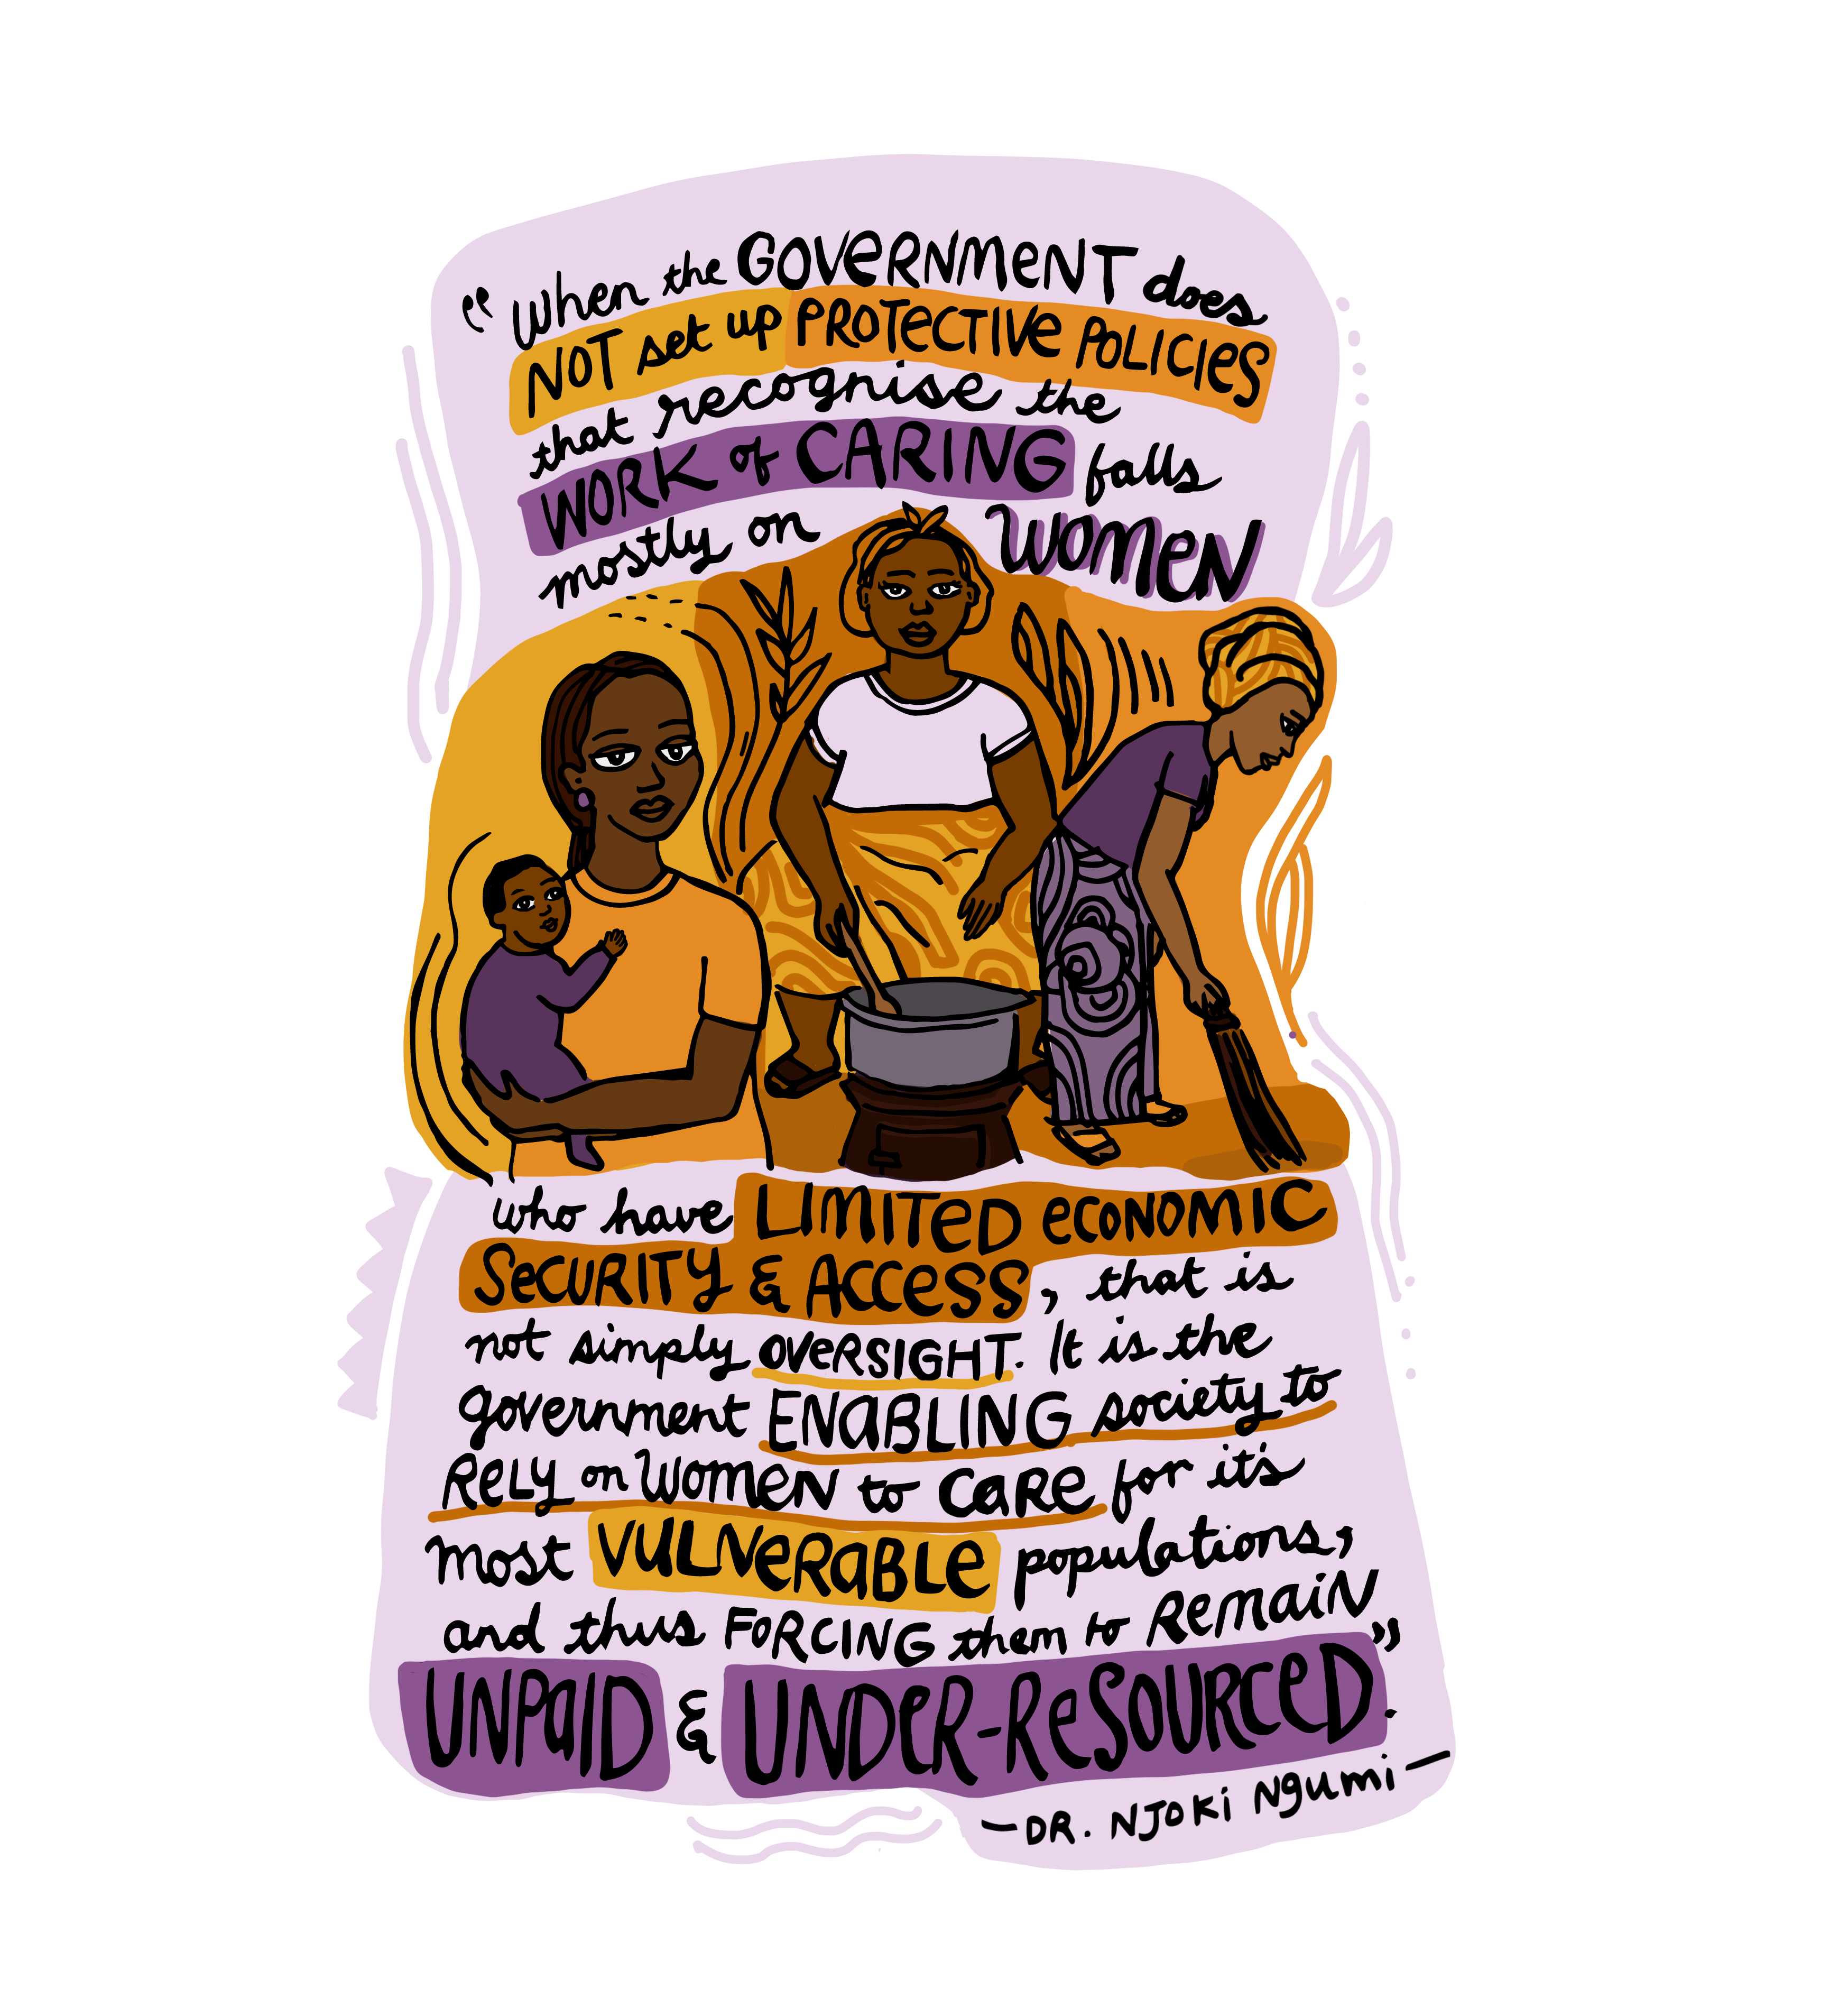 “When the GOVERNMENT does
NOT set up PROTECTIVE POLICIES
that recognise the
WORK of CARING falls
mostly on WOMEN
who have LIMITED ECONOMIC
SECURITY & ACCESS, that is
not simply OVERSIGHT. It is the
government ENABLING society to
RELY on WOMEN to CARE for it's
most VULNERABLE populations,
and thus FORCING them to REMAIN
UNPAID & UNDER-RESOURCED.”
— DR. NJOKI NGUMI —